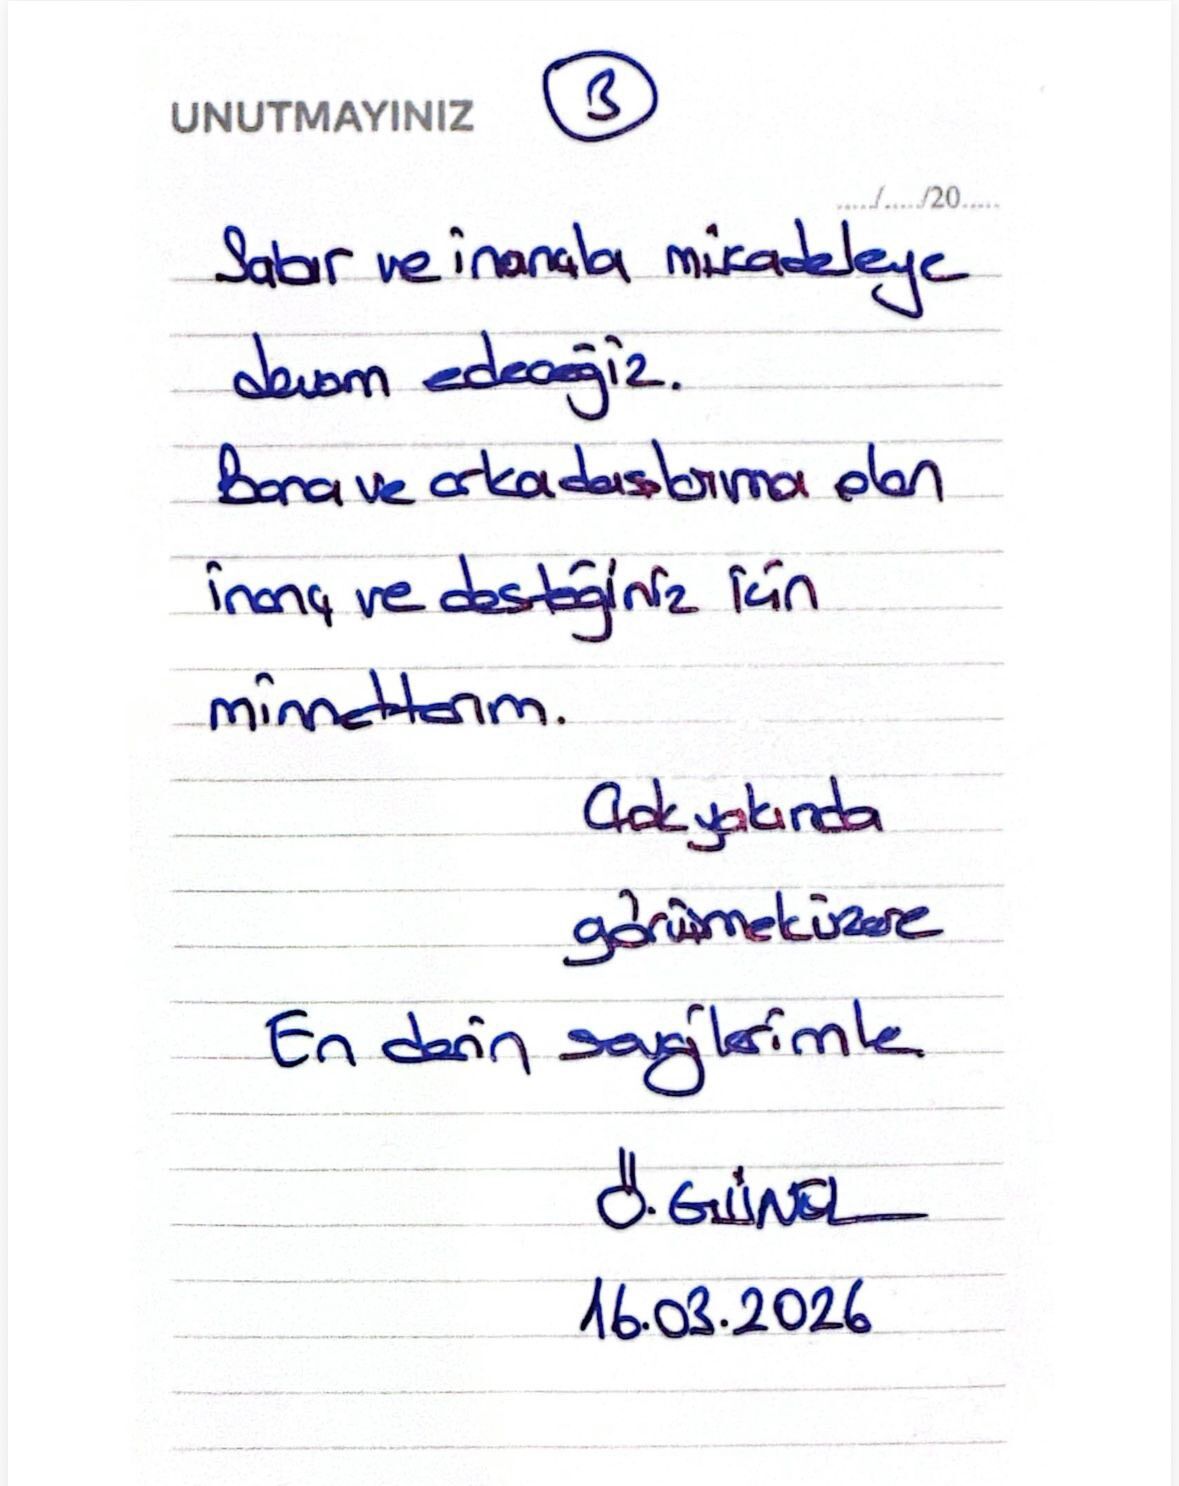 UNUTMAYINIZ
3
...../...../20.....
Sabır ve inançla mücadeleye
devam edeceğiz.
Bana ve arkadaşlarıma olan
inanç ve desteğiniz için
minnettarım.
Çok yakında
görüşmek üzere
En derin sevgilerimle
Ö. GÜNEL
16.03.2026